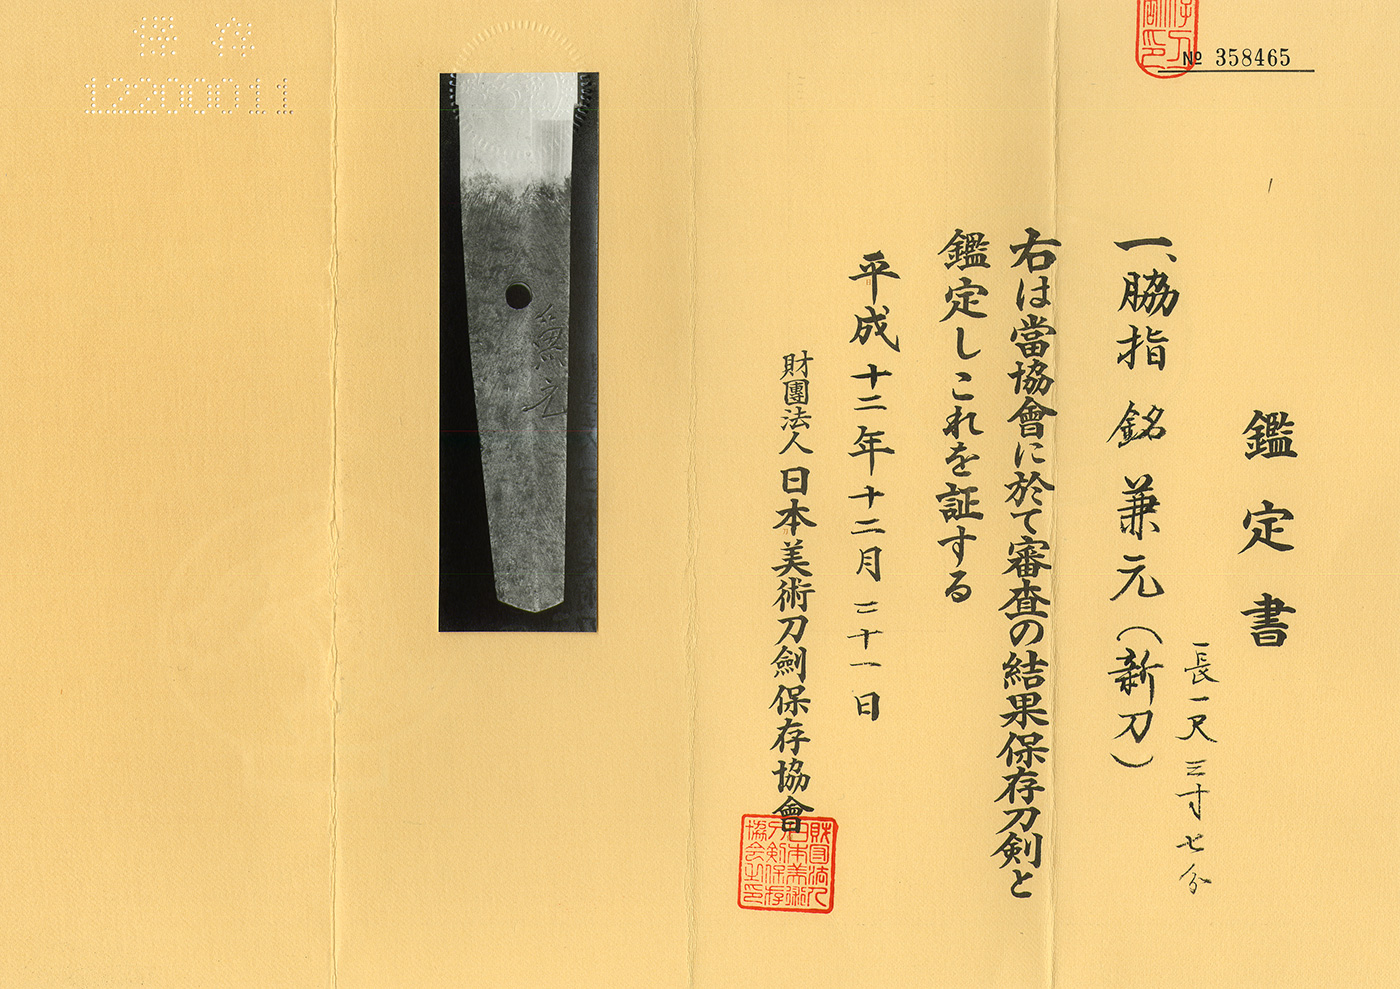 № 358465
鑑定書
一、脇指 銘 兼元(新刀)
長一尺三寸七分
右は當協會に於て審査の結果保存刀剣と
鑑定しこれを証する
平成十二年十二月二十一日
財團法人 日本美術刀劍保存協會
財団法人
日本美術
刀剣保存
協会之印
兼元
保存
12200011